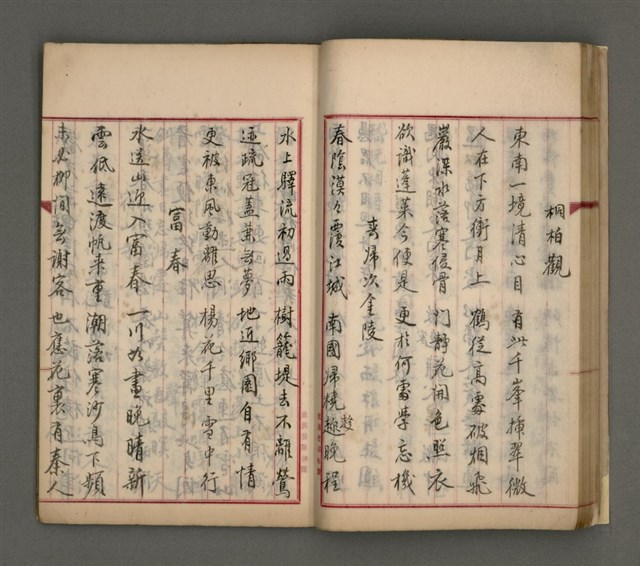 桐柏觀
東南一境清心目 有此千峯揷翠微
人在下方衝月上 鶴從高處破烟飛
巖深水落寒侵骨 門靜花開色照衣
欲識蓬萊今便是 更於何處學忘機
春歸次金陵
春陰漠々覆江城 南國歸橈趁晚程
水上驛流初過雨 樹籠堤去不離鶯
迹疏冠蓋兼無夢 地近鄉園自有情
更被東風動離思 楊花千里雪中行
富春
水送山迎入富春 一川如畫晚晴新
雲低遠渡帆来重 潮落寒沙鳥下頻
未必柳間無謝客 也應花裏有秦人